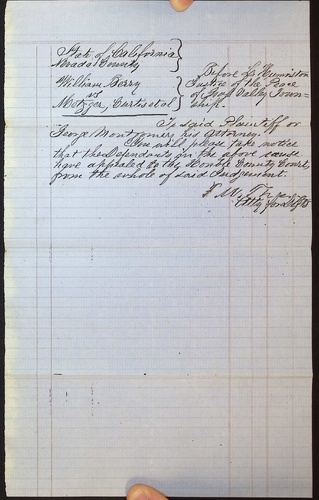 State of California }
Nevada County
William Berry } Before S. Huniston
vs Justice of the Peace
Metzger, Curtis et al of Grass Valley Town-
ship.
To said Plaintiff or
George Montgomery his Attorney.
You will please take notice
that the Defendants in the above cause
have appealed to the County Court
from the whole of said Judgement.
Atty for Defts